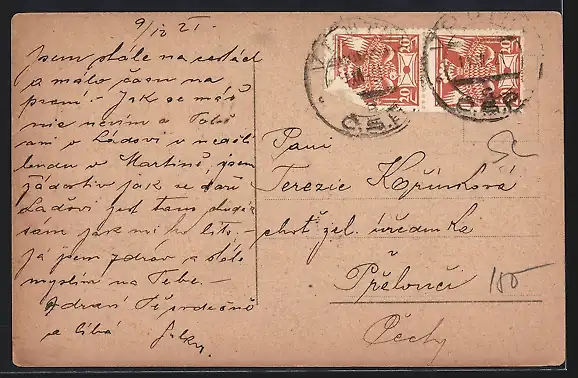 9/IX 21.
Jsem stále na cestách
a málo času na
psaní. – Jak se máš
nic nevím a Tobě
ani o Láďovi v neděli
budu v Martině, jsem
žádostiv jak se daří
Laďovi jest tam
sám jak mi ho líto. –
Já jsem zdráv a stále
myslím na Tebe. –
Zdraví Tě srdečně
a líbá
Paní
Terezie Kořínková
choť žel. úředníka
Přelouč
Čechy
Č.S.P.
Č.S.P.
40
40
105